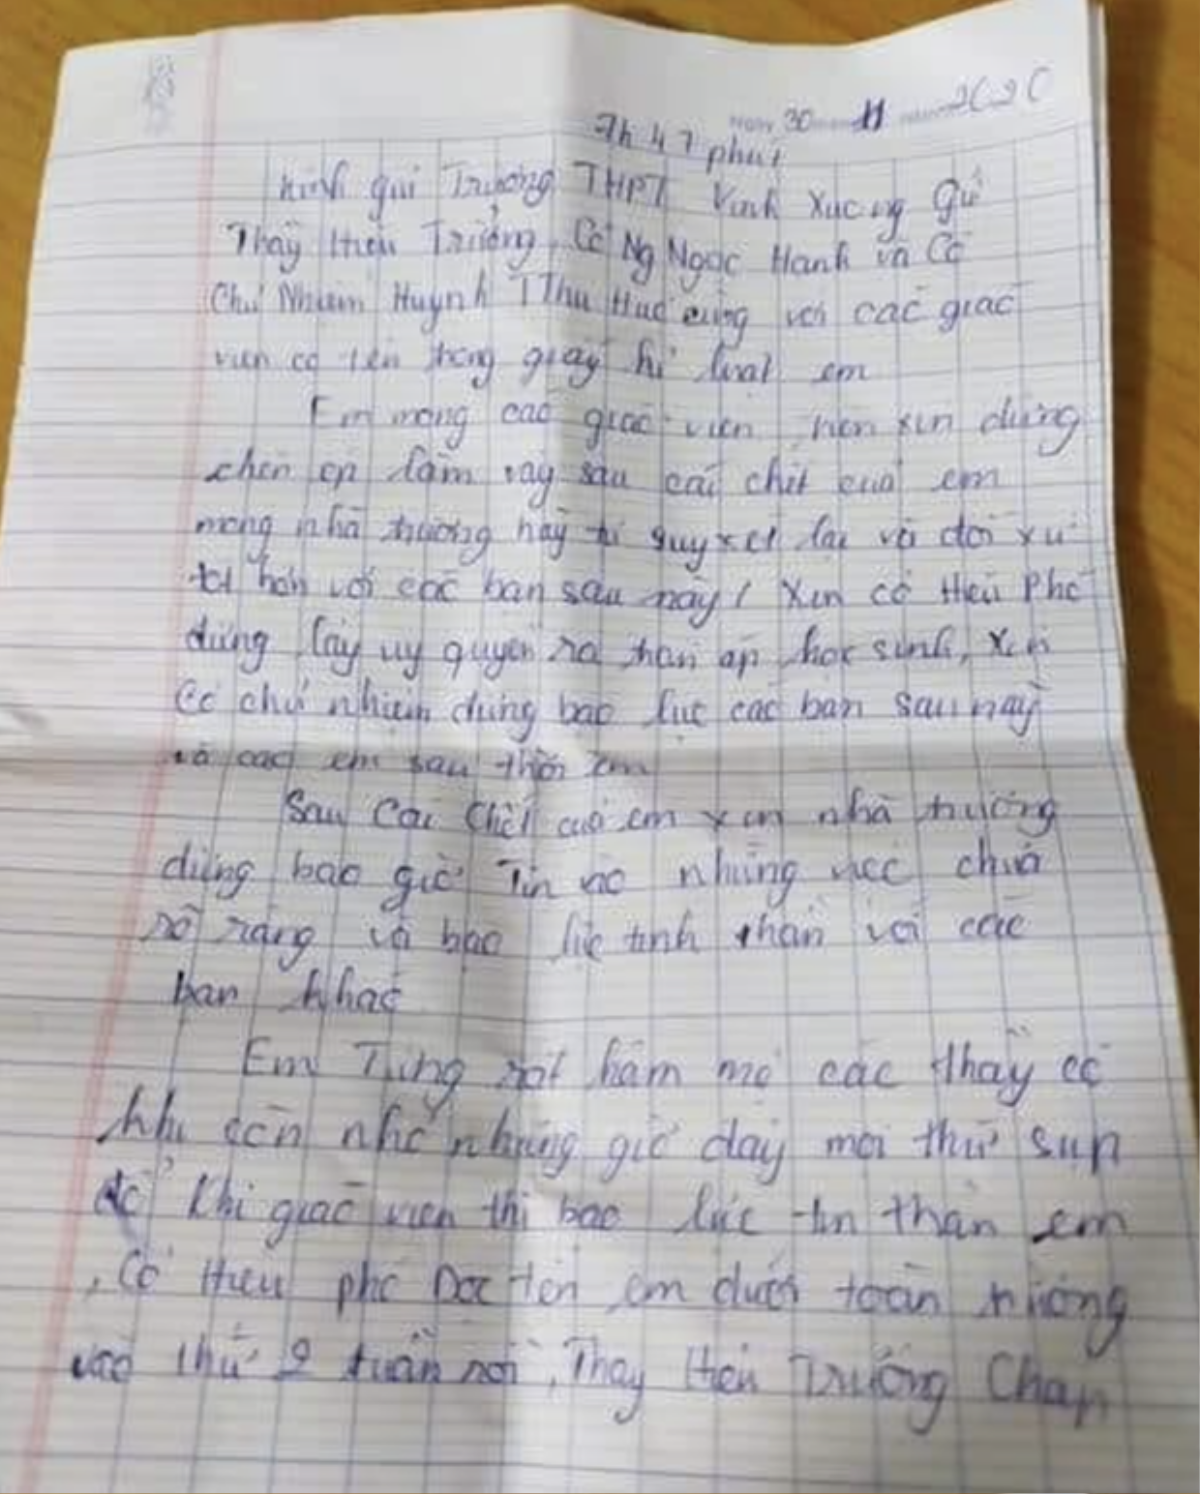 Ngày 30 11 2020
7h 47 phút
Kính gửi Trường THPT Vĩnh Xương gửi
Thầy Hiệu Trưởng, Cô Ng Ngọc Hạnh và Cô
Chủ Nhiệm Huỳnh T Thu Huệ cùng với các giáo
viên có tên trong giấy kỉ luật em
Em mong các giáo viên trên xin đừng
chèn ép làm vậy sau cái chết của em
mong nhà trường hãy quy xét lại và đối xử
tốt hơn với các bạn sau này! Xin cô Hiệu Phó
đừng lấy uy quyền ra trấn áp học sinh, Xin
Cô chủ nhiệm đừng bạo lực các bạn sau này
và các em sau thời em
Sau Cái Chết của em xin nhà trường
đừng bao giờ Tin vào những việc chưa
rõ ràng và bạo lực tinh thần với các
bạn khác
Em Từng rất hâm mộ các thầy cô
khi còn nhỏ nhưng giờ đây mọi thứ sụp
đổ Khi giáo viên thì bạo lực tin thần em
, Cô Hiệu phó Đọc tên em dưới toàn trường
vào thứ 2 tuần rồi, Thầy Hiệu Trưởng Chấp